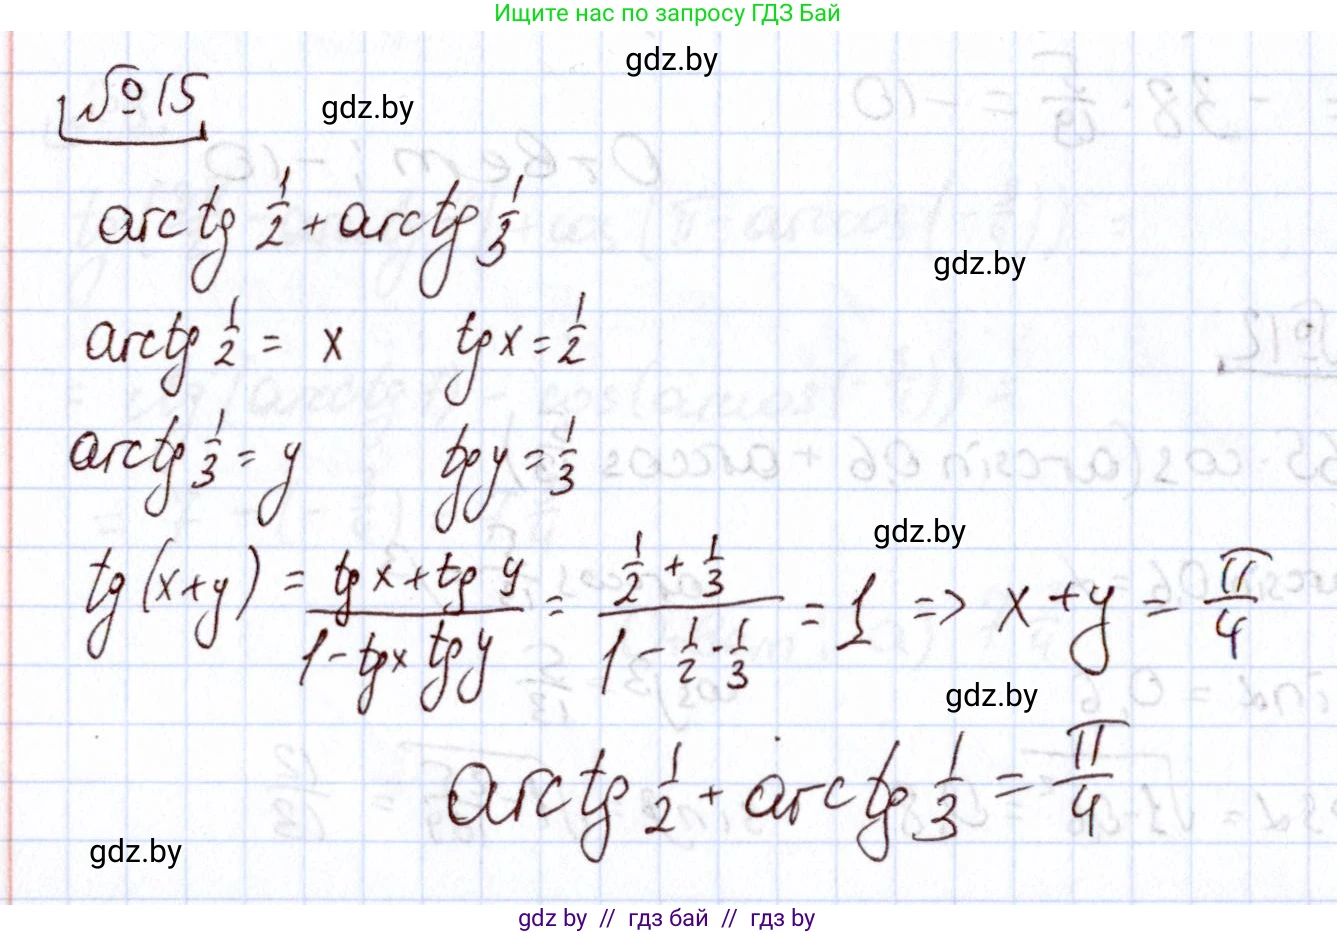 Ищите нас по запросу ГДЗ Бай
gdz.by
№15
gdz.by
arctg 1/2 + arctg 1/3
gdz.by
arctg 1/2 = x tg x = 1/2
arctg 1/3 = y tg y = 1/3
gdz.by
tg (x+y) = (tg x + tg y)/(1 - tg x tg y) = (1/2 + 1/3)/(1 - 1/2 · 1/3) = 1 => x + y = π/4
gdz.by
arctg 1/2 + arctg 1/3 = π/4
gdz.by
gdz by // гдз бай // гдз by